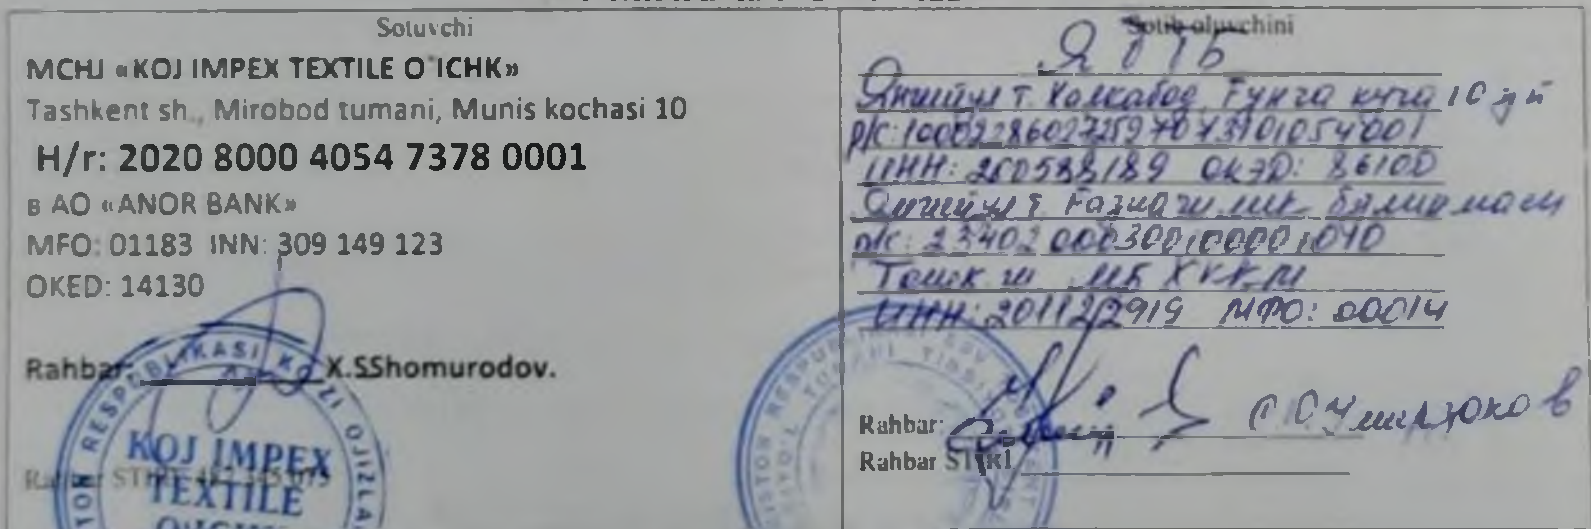 Sotuvchi
MCHJ «KOJ IMPEX TEXTILE O`ICHK»
Tashkent sh., Mirobod tumani, Munis kochasi 10
H/r: 2020 8000 4054 7378 0001
в АО «ANOR BANK»
MFO: 01183 INN: 309 149 123
OKED: 14130
Rahbar: X.SShomurodov.
KOJ IMPEX
TEXTILE
Sotib oluvchini
Я Т Т Б
т. Халкабод, Гунча куча 10 уй
р/с: 100022860272597073101054001
ИНН: 200538189 ОКЭД: 86100
т. Газначилик булинмаси
р/с: 23402000300100001010
Тошк ш МБ ХККМ
ИНН: 201122919 МФО: 00014
Rahbar:
Rahbar STIR1